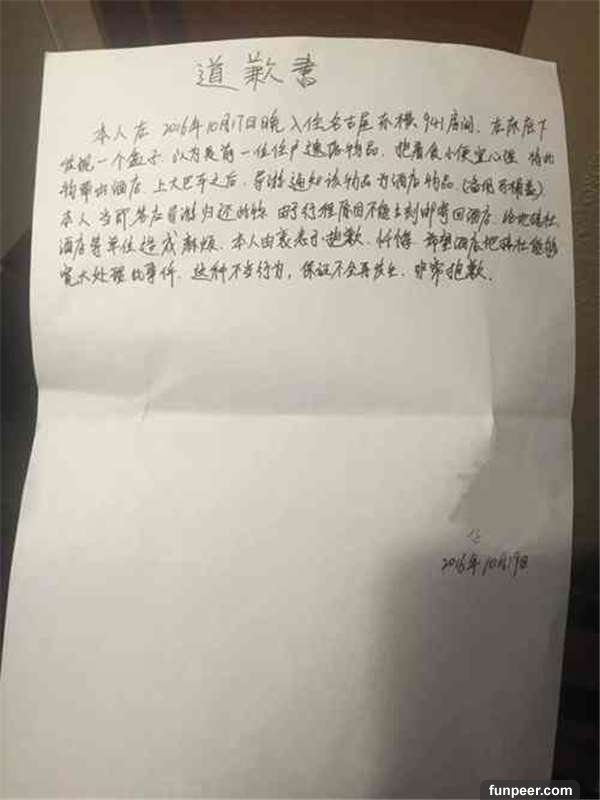 道歉書
本人在2016年10月17日晚入住名古屋东横941房间,在床底下
发现一个盒子,以为是前一位住户遗留物品,抱着贪小便宜心理,将此
物带出酒店,上大巴车之后,导游通知该物品为酒店物品(备用马桶盖)
本人当即答应导游归还此物,由于行程原因不能立刻邮寄回酒店,给地接社,
酒店等单位造成麻烦,本人由衷表示抱歉、忏悔,希望酒店地接社能够
宽大处理此事件,这种不当行为,保证不会再发生,非常抱歉.
2016年10月19日
funpeer.com